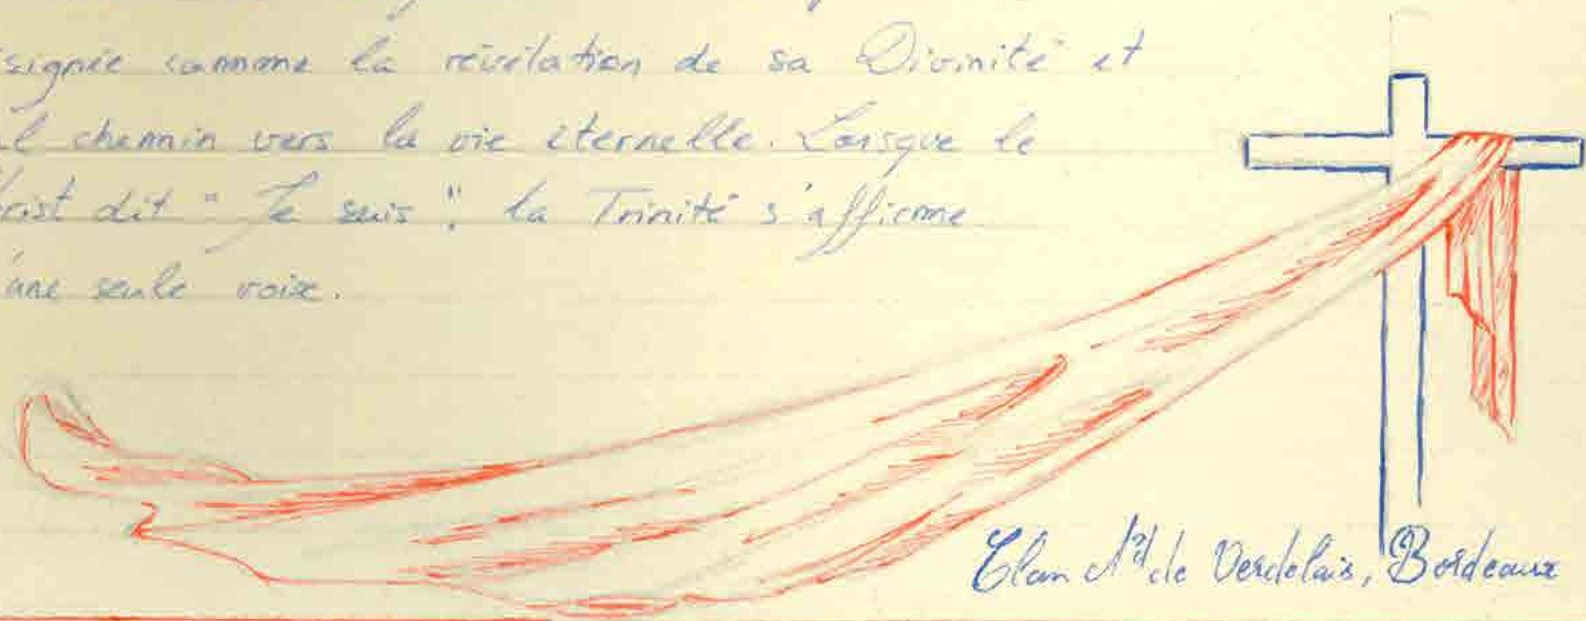 signée comme la révélation de sa Divinité et
l chemin vers la vie éternelle. Lorsque le
rist dit "Je suis", la Trinité s'affirme
'une seule voix.
Clan Nd de Verdelais, Bordeaux